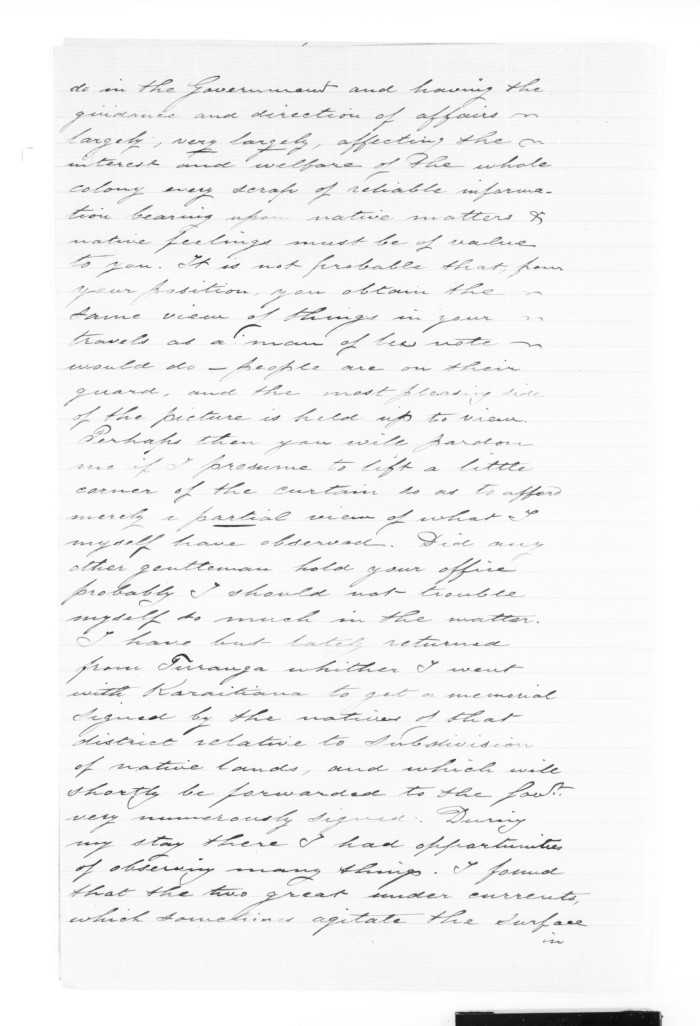 do in the Government and having the
guidance and direction of affairs ~
largely, very largely, affecting the ~
interest and welfare of the whole
colony every scrap of reliable informa-
tion bearing upon native matters &
native feelings must be of value
to you. It is not probable that, from
your position, you obtain the ~
same view of things in your ~
travels as a man of less note ~
would do – people are on their
guard, and the most pleasing side
of the picture is held up to view.
Perhaps then you will pardon
me if I presume to lift a little
corner of the curtain so as to afford
merely a partial view of what I
myself have observed. Did any
other gentleman hold your office
probably I should not trouble
myself so much in the matter.
I have but lately returned
from Turanga whither I went
with Karaitiana to get a memorial
signed by the natives of that
district relative to subdivision
of native lands, and which will
shortly be forwarded to the Govt.
very numerously signed. During
my stay there I had opportunities
of observing many things. I found
that the two great under currents,
which sometimes agitate the surface
in